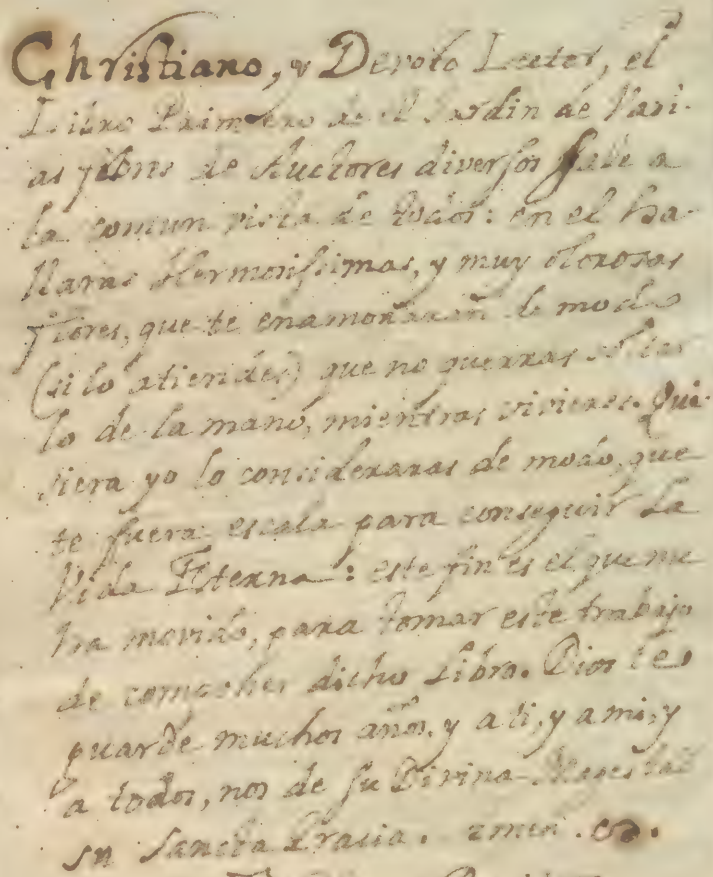 Christiano, y Devoto Lector, el
Libro Primero de el Jardin de Vari-
as flores de Auctores diversos sale a
la comun vista de todos: en el ha-
llaras Hermosissimas, y muy olorosas
Flores, que te enamoraran de modo
(si lo atiendes) que no querras soltar
lo de la mano, mientras vivieres. Qui-
siera yo lo consideraras de modo, que
te fuera escala para conseguir la
Vida Eterna: este fin es el que me
ha movido, para tomar este trabajo
de componer dicho Libro. Dios te
guarde muchos años, y a ti, y a mi, y
a todos, nos de su Divina Magestad
su Sancta Gracia. Amen.